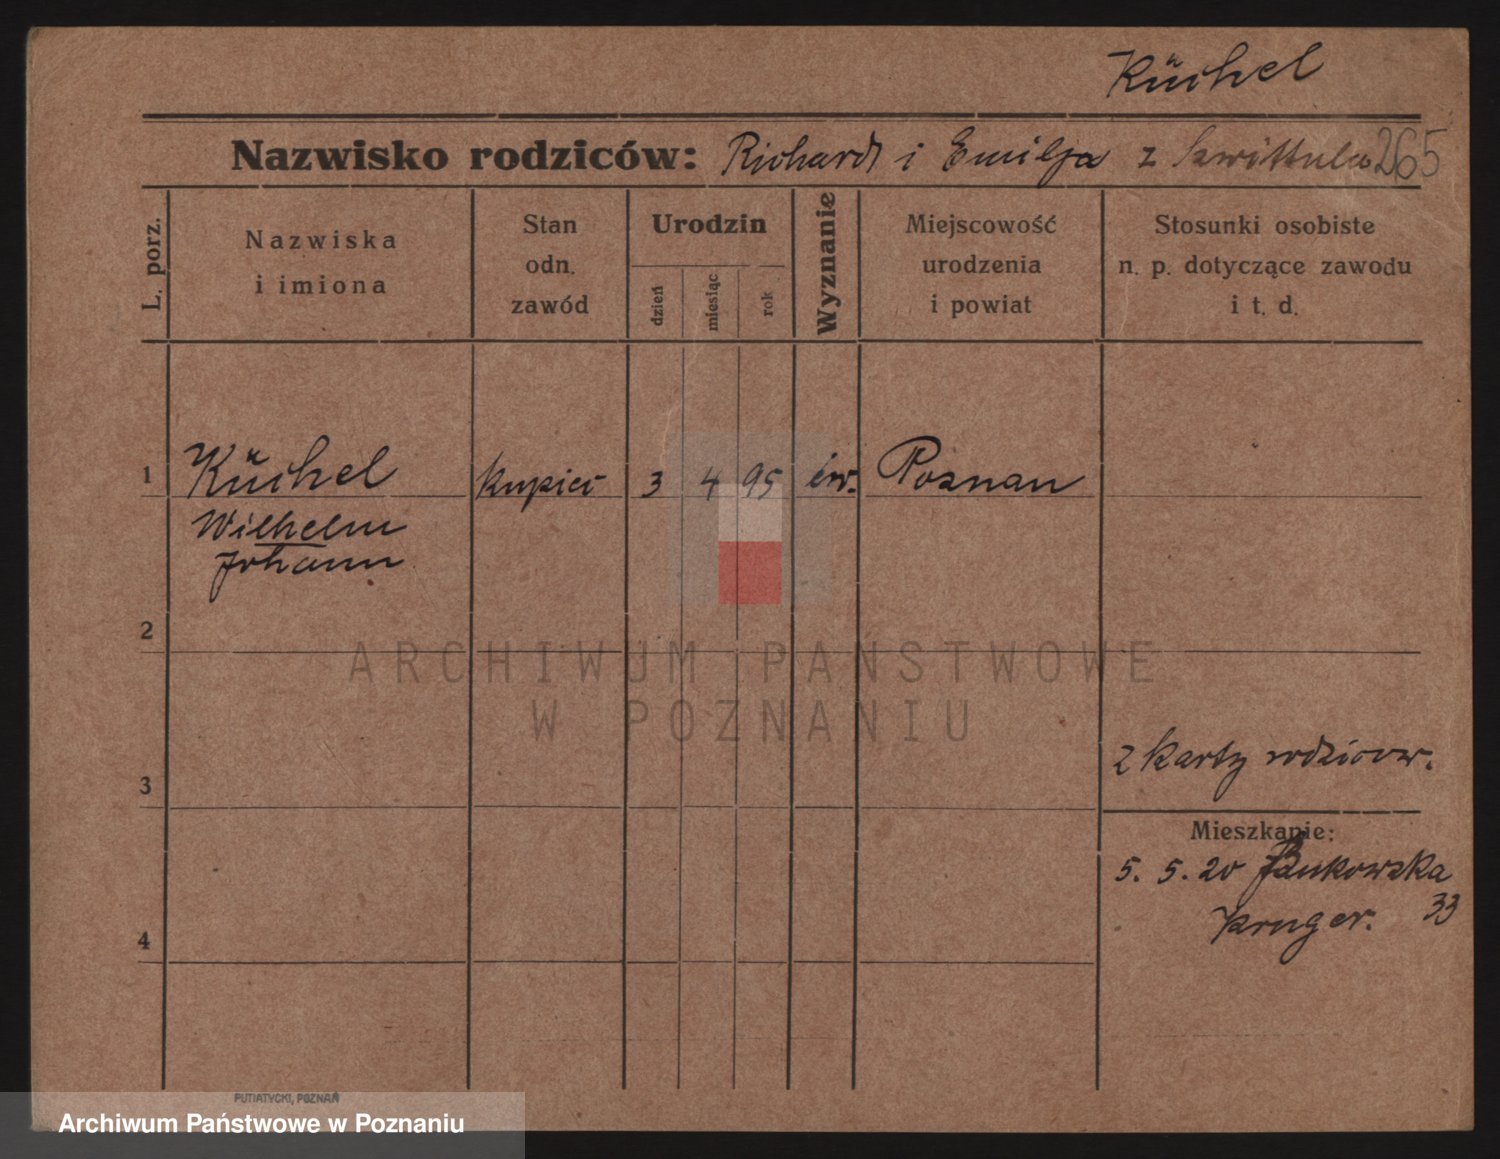 Küchel
Nazwisko rodziców: Richard i Emilja z 265
L. porz.
Nazwiska
i imiona
Stan
odn.
zawód
Urodzin
dzień
miesiąc
rok
Wyznanie
Miejscowość
urodzenia
i powiat
Stosunki osobiste
n. p. dotyczące zawodu
i t. d.
1 Küchel kupiec 3 4 95 ew. Poznan
Wilhelm
Johann
2
ARCHIWUM PAŃSTWOWE
W POZNANIU
z karty rodzicow.
3
Mieszkanie:
5. 5. 20 Bukowska
33
Kruger.
4
PUTIATYCKI, POZNAŃ
Archiwum Państwowe w Poznaniu